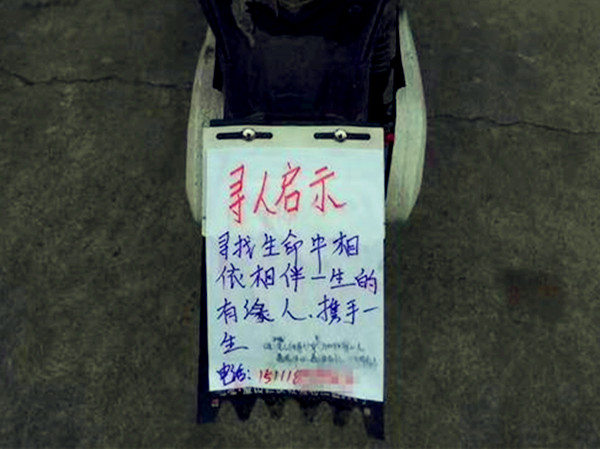 寻人启示
寻找生命中相
依相伴一生的
有缘人、携手一
生
电话：151118